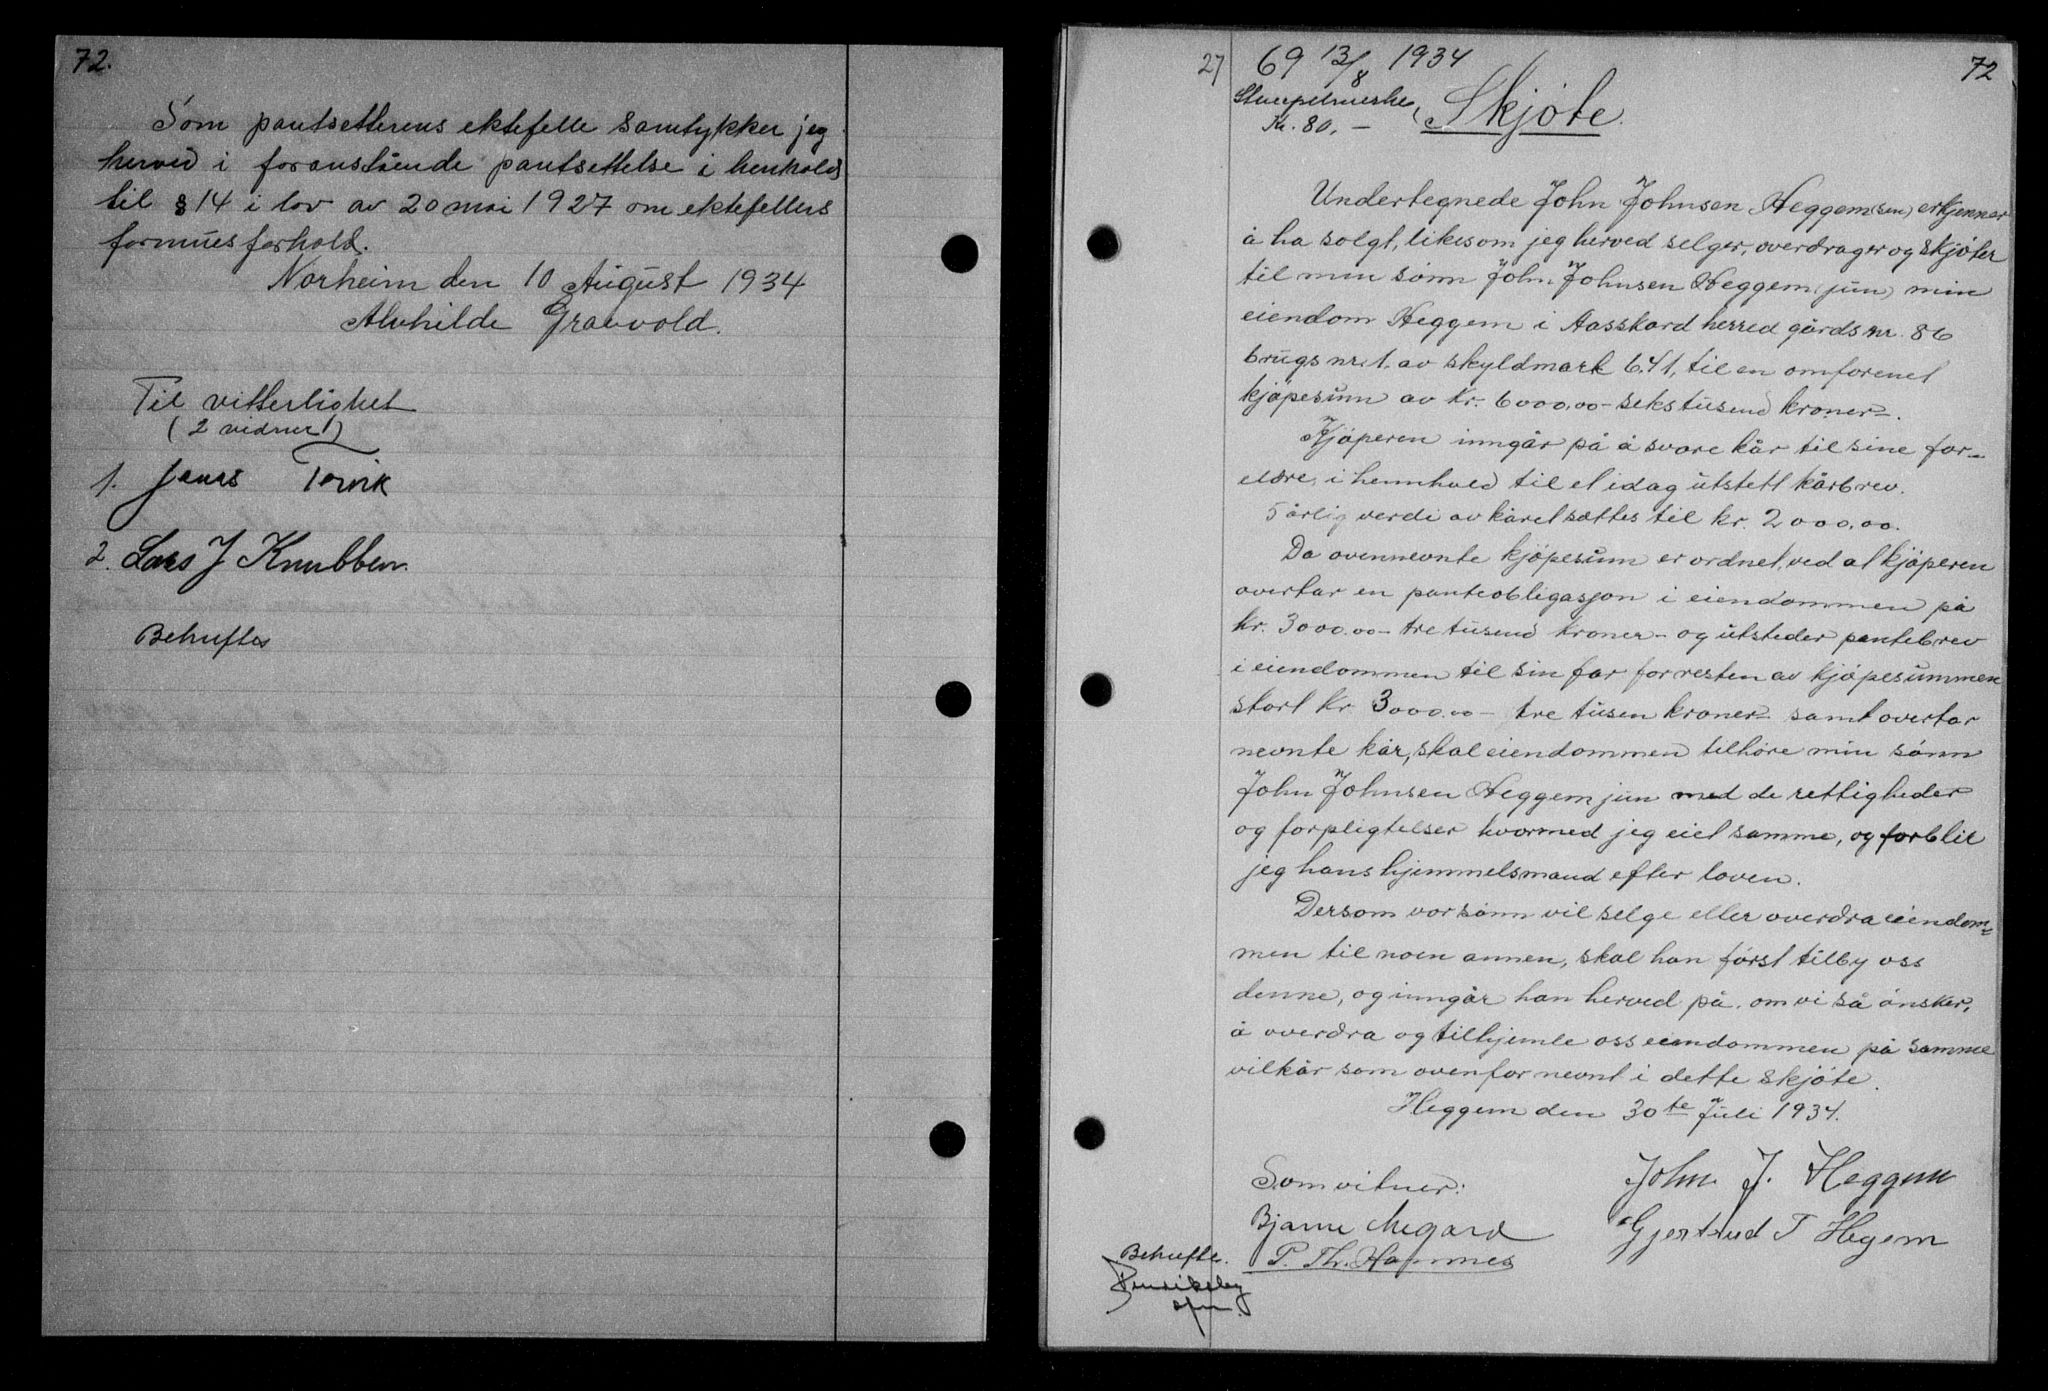 72.
Som pantsetterens ektefelle samtykker jeg
herved i foranstående pantsettelse i henhold
til § 14 i lov av 20 mai 1927 om ektefellers
formuesforhold.
Norheim den 10 August 1934
Alvhilde Gravvold.
Til vitterlighet
(2 vidner!)
1. Jens Torvik
2. Lars J Knubben.
Behuftes
27 69 13/8 1934 72
Stempelmerke
Kr. 80,-
Skjöte.
Undertegnede John Johnsen Heggem (sen) erkjenner
å ha solgt, likesom jeg herved selger, overdrager og skjöter
til min sönn John Johnsen Heggem (jun) min
eiendom Heggem i Aasskard herred gårdsnr. 86
brugsnr. 1. av skyldmark 6.41, til en omforenet
kjöpesum av kr. 6000.00 - sekstusend kroner -.
Kjöperen inngår på å svare kår til sine for-
eldre, i hennhold til et idag utstett kårbrev.
5 årlig verdi av kåret sættes til kr. 2000,00.
Da ovennevnte kjöpesum er ordnet, ved at kjöperen
overtar en panteobligasjon i eiendommen på
kr. 3000.00 - tre tusend kroner - og utsteder pantebrev
i eiendommen til sin far for resten av kjöpesummen
stort kr 3000.00 - tre tusen kroner - samt overtar
nevnte kår, skal eiendommen tilhöre min sönn
John Johnsen Heggem jun med de rettigheder
og forpligtelser hvormed jeg eiet samme, og forblir
jeg hans hjemmelsmand efter loven.
Dersom vor sönn vil selge eller overdra eiendom-
men til noen annen, skal han först tilby oss
denne, og inngår han herved på, om vi så önsker,
å overdra og tilhjemle oss eiendommen på samme
vilkår som ovenfor nevnt i dette skjöte.
Heggem den 30te Juli 1934.
Som vitner:
John J. Heggem
Bjarne Megard
Gjertrud T Hegem
P. Th. Hamnes
Behufte.